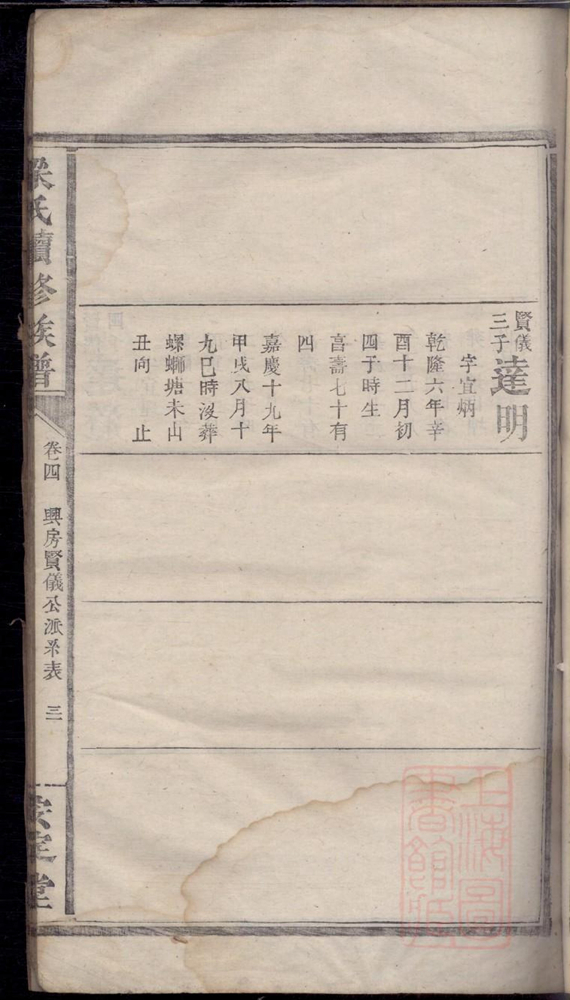 賢儀
三子
達明
字宜炳
乾隆六年辛
酉十二月初
四子時生
享壽七十有
四
嘉慶十九年
甲戌八月十
九巳時沒葬
螺螄塘未山
丑向　止
梁氏續修族譜
卷四　興房賢儀公派系表　三
安定堂
上海圖
書館藏